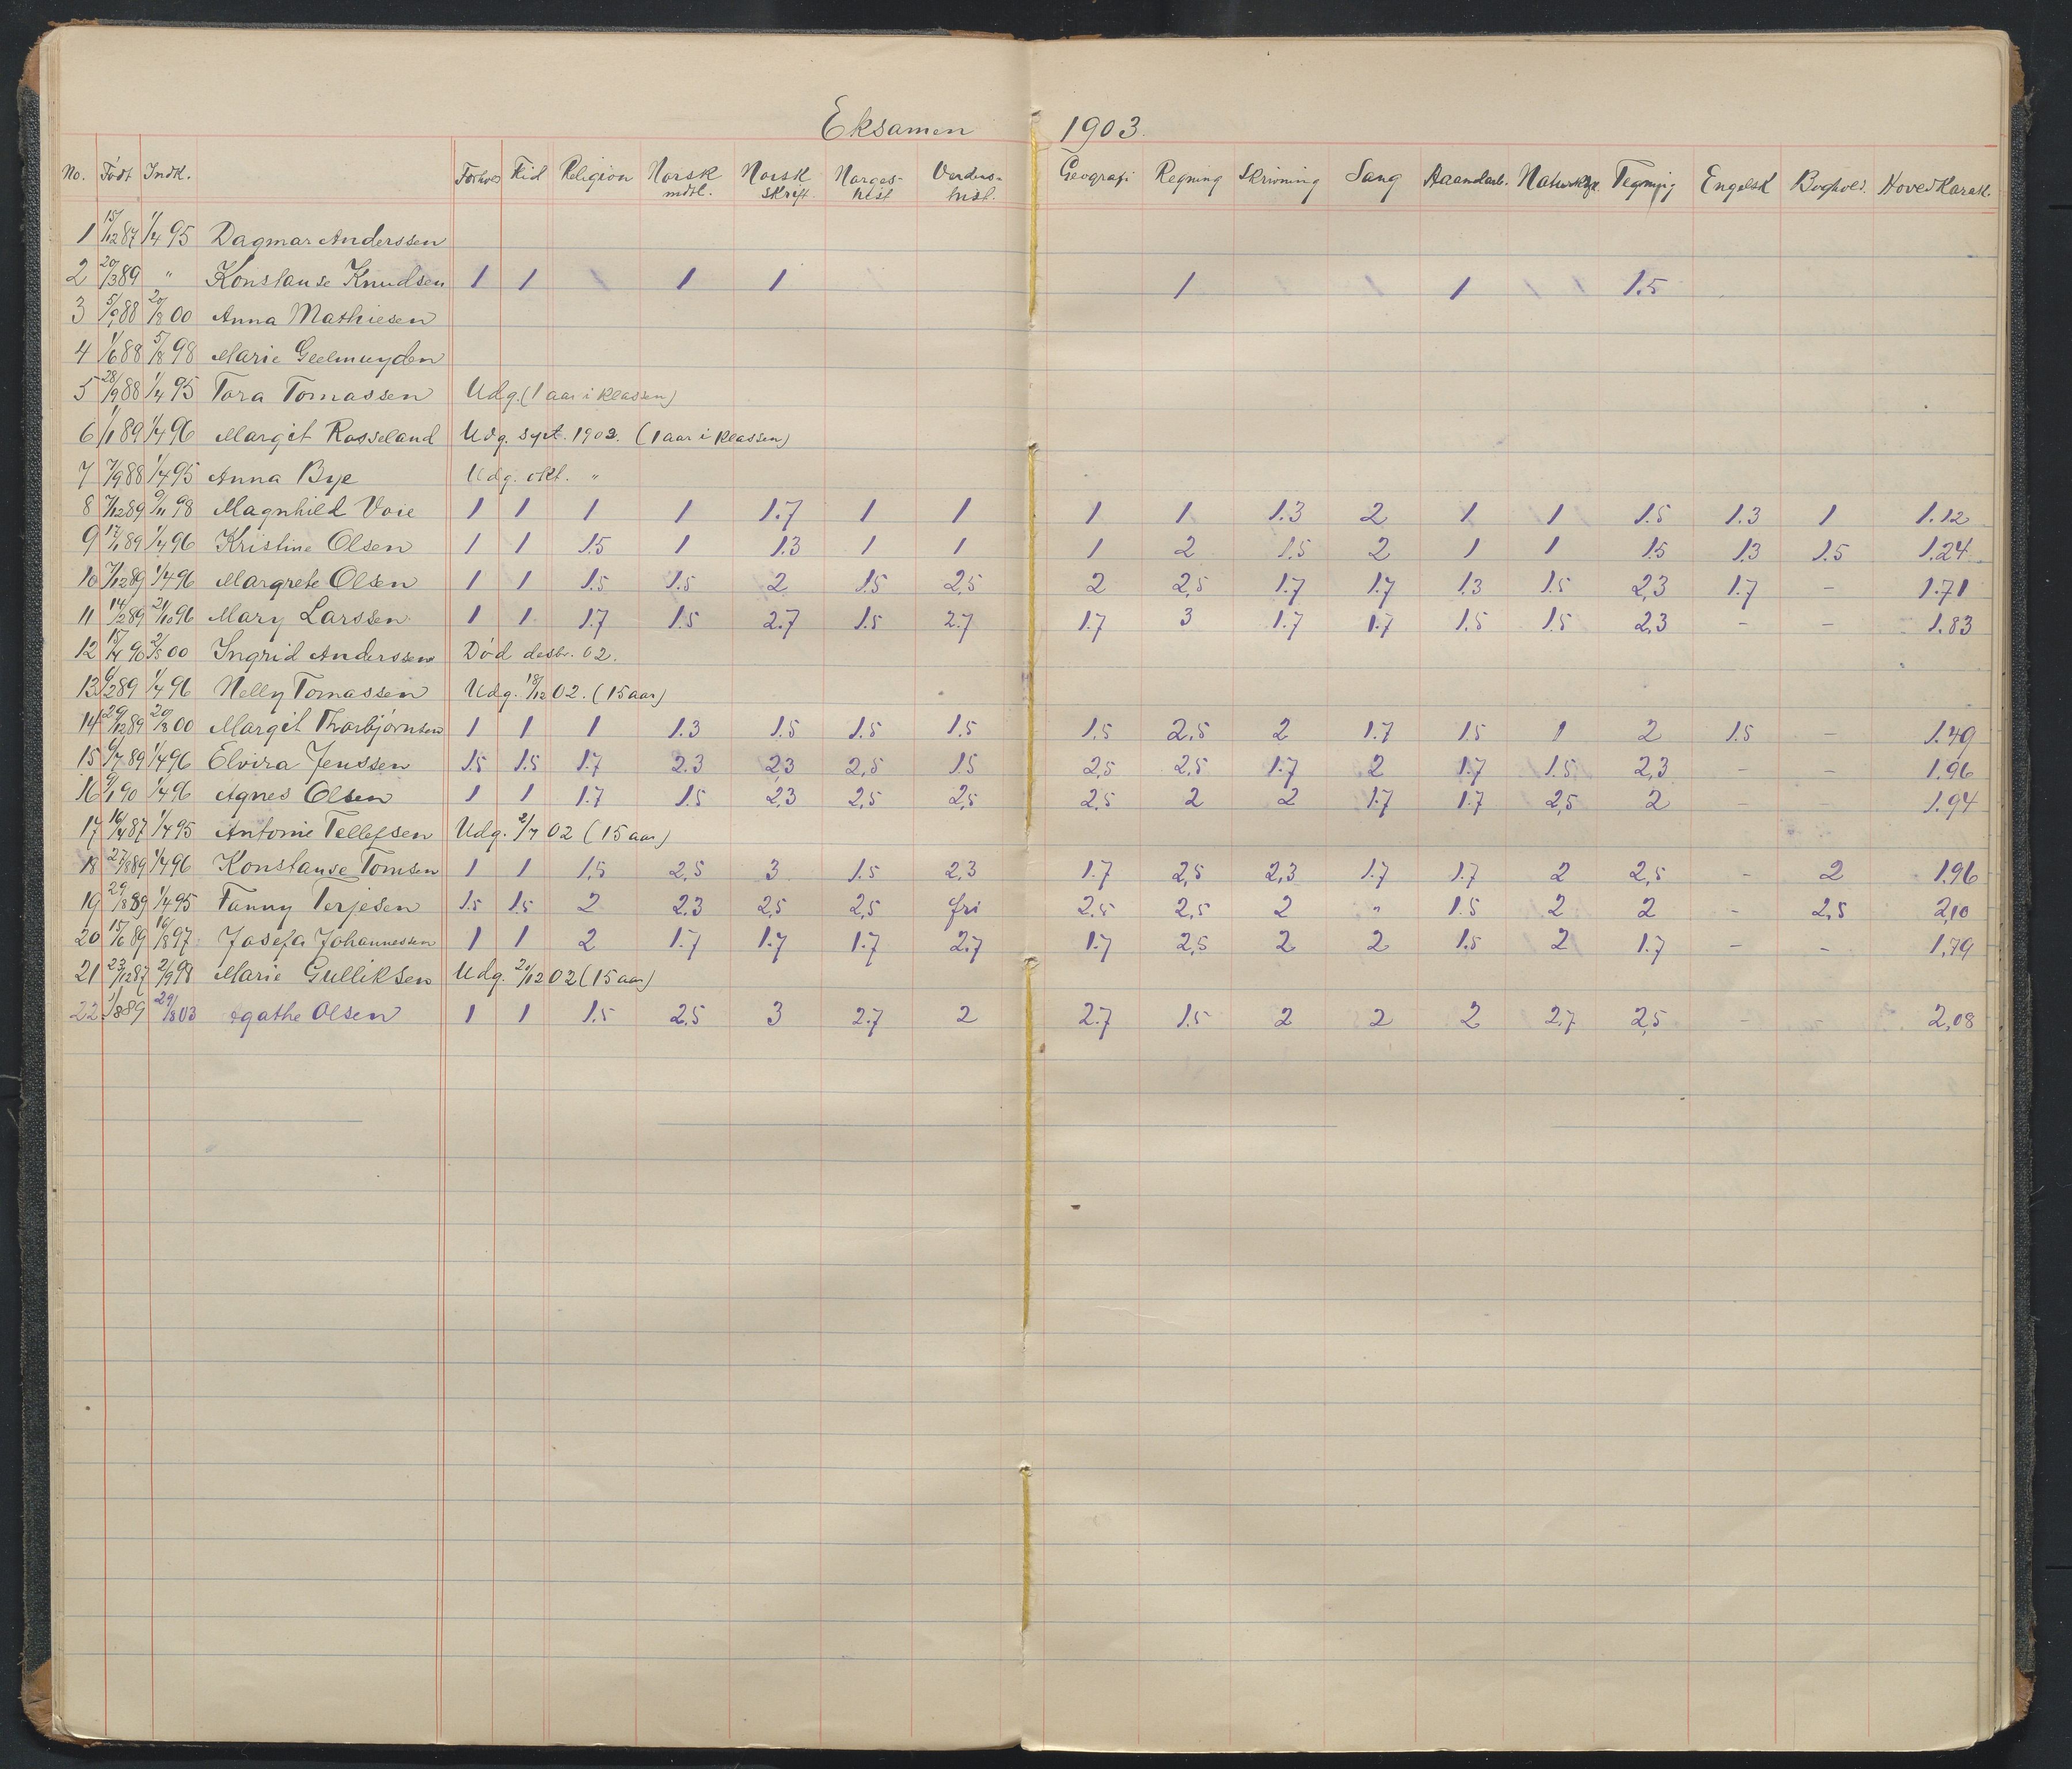 Eksamen 1903.
No. Født Indk. Forhold Flid Religion Norsk mdtl. Norsk skrift. Norges-hist Verdens-hist. Geografi Regning Skrivning Sang Haandarb. Naturk. Tegning Engelsk Boghold. HovedKarakt.
1 15/12 87 1/4 95 Dagmar Anderssen
2 20/3 89 " Konstanse Knudsen 1 1 1 1 1 1 1.5
3 88 20/8 00 Anna Mathiesen
4 1/6 88 5/8 98 Marie Geelmuyden
5 28/9 88 1/4 95 Tora Tomassen Udg. (1 aar i klassen)
6 1/1 89 1/4 96 Margit Rosseland Udg. sept. 1902. (1 aar i klassen)
7 7/9 88 1/4 95 Anna Bye Udg. okt. "
8 7/12 89 9/11 98 Magnhild Voie 1 1 1 1 1.7 1 1 1 1 1.3 2 1 1 1.5 1.3 1 1.12
9 17/1 89 1/4 96 Kristine Olsen 1 1 1.5 1 1.3 1 1 1 2 1.5 2 1 1 1.5 1.3 1.5 1.24
10 7/12 89 1/4 96 Margrete Olsen 1 1 1.5 1.5 2 1.5 2,5 2 2,5 1.7 1.7 1.3 1.5 2,3 1.7 – 1.71
11 14/2 89 21/10 96 Mary Larssen 1 1 1.7 1.5 2.7 1.5 2.7 1.7 3 1.7 1.7 1.5 1.5 2.3 – – 1.83
12 15/4 90 2/5 00 Ingrid Anderssen Død desbr. 02.
13 6/2 89 1/4 96 Nelly Tomassen Udg. 18/12 02. (15 aar)
14 29/12 89 20/8 00 Margit Thorbjørnsen 1 1 1 1.3 1.5 1.5 1.5 1.5 2,5 2 1.7 1.5 1 2 1.5 – 1.49
15 6/7 89 1/4 96 Elvira Jenssen 1.5 1.5 1.7 2.3 2,3 2,5 1.5 2,5 2,5 1.7 2 1.7 1.5 2,3 – – 1.96
16 9/1 90 1/4 96 Agnes Olsen 1 1 1.7 1.5 2,3 2,5 2,5 2,5 2 2 1.7 1.7 2,5 2 – – 1.94
17 16/4 87 1/4 95 Antonie Tellefsen Udg. 2/7 02 (15 aar)
18 27/8 89 1/4 96 Konstanse Tomsen 1 1 1,5 2,5 3 1.5 2,3 1.7 2,5 2,3 1.7 1.7 2 2,5 – 2 1.96
19 29/8 89 1/4 95 Fanny Terjesen 1.5 1.5 2 2.3 2,5 2,5 fri 2.5 2,5 2 " 1.5 2 2 – 2,5 2,10
20 15/6 89 16/8 97 Josefa Johannessen 1 1 2 1.7 1.7 1.7 2.7 1.7 2,5 2 2 1.5 2 1.7 – – 1,79
21 23/12 87 2/9 98 Marie Gulliksen Udg. 20/12 02 (15 aar)
22 1/8 89 29/8 03 Agathe Olsen 1 1 1.5 2,5 3 2.7 2 2.7 1.5 2 2 2 2,7 2,5 – – 2,08